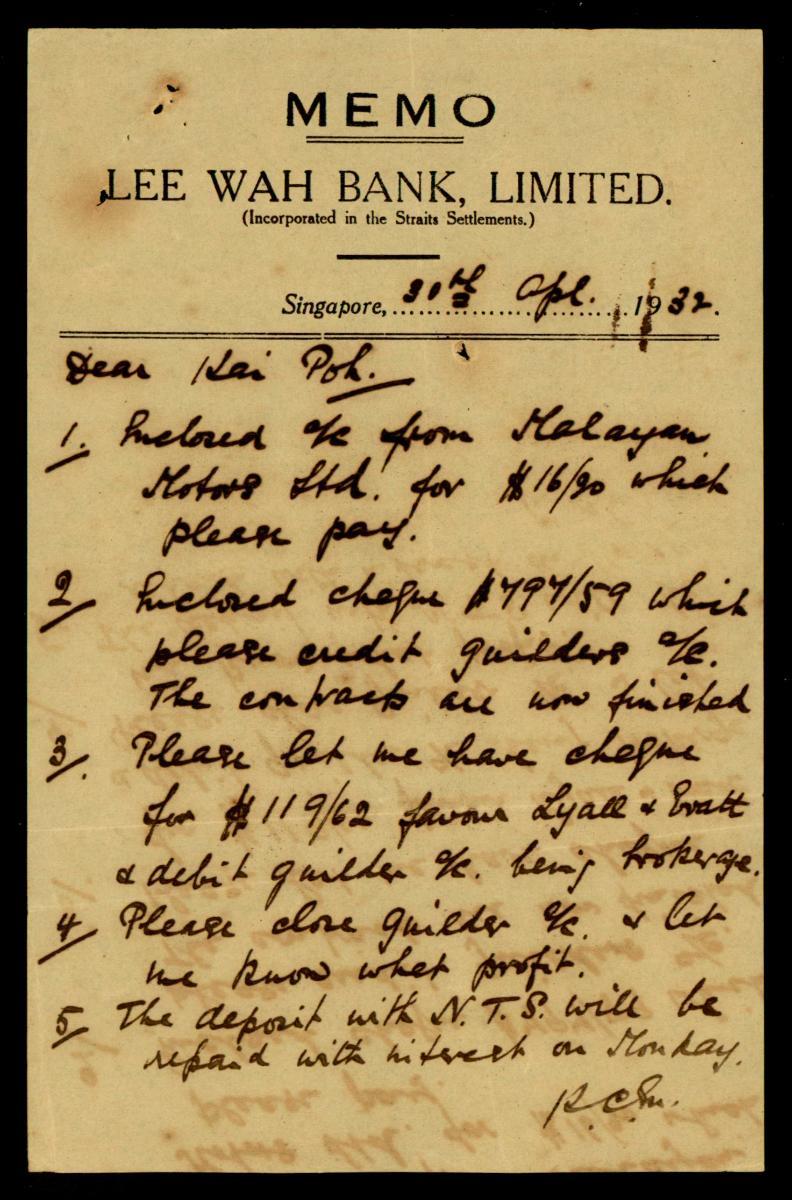 MEMO
LEE WAH BANK, LIMITED.
(Incorporated in the Straits Settlements.)
Singapore, 30th Apl. 1932.
Dear Kai Poh.
1. Enclosed a/c from Malayan
Motors Ltd. for $16/90 which
please pay.
2/ Enclosed cheque $797/59 which
please credit guilders a/c.
The contracts are now finished
3/. Please let me have cheque
for $119/62 favour Lyall & Evatt
& debit guilder a/c. being brokerage.
4/ Please close guilder a/c. & let
me know what profit.
5/ The deposit with N.T.S. will be
repaid with interest on Monday.